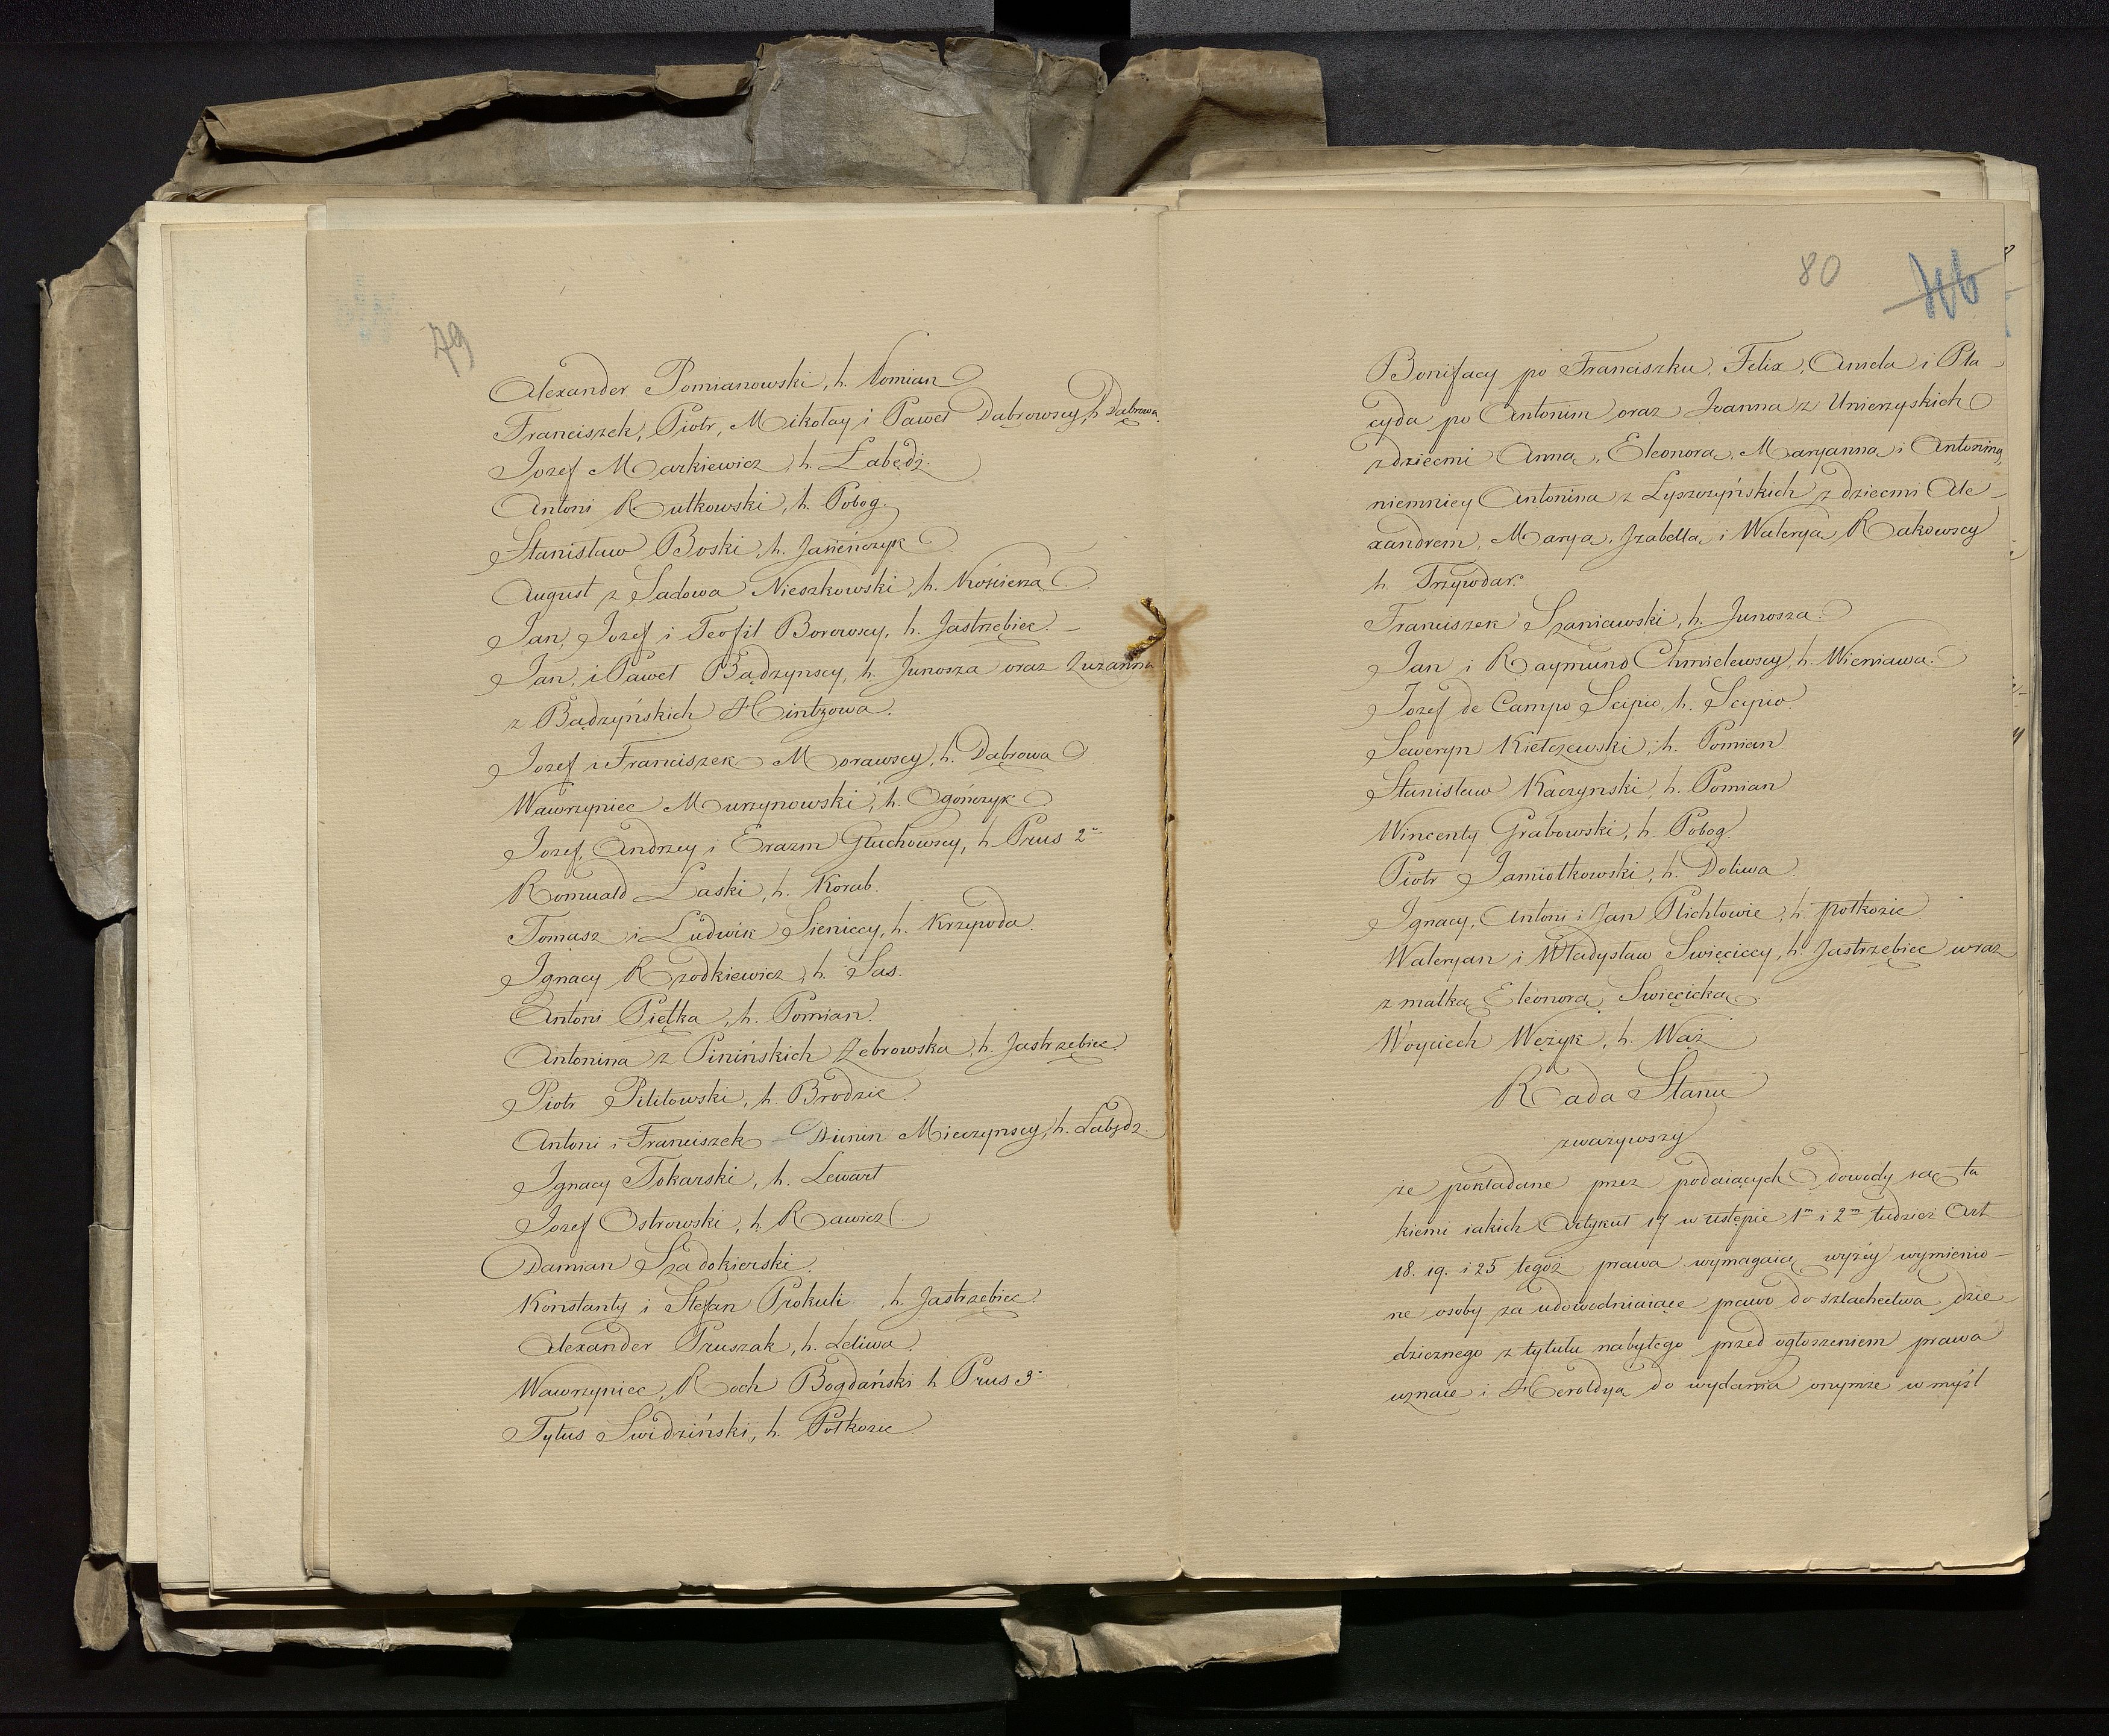 79
Alexander Pomianowski, h. Nomian
Franciszek, Piotr, Mikołay i Paweł Dąbrowscy, h. Dąbrowa.
Jozef Markiewicz, h. Łabędź.
Antoni Rutkowski, h. Pobog.
Stanisław Boski, h. Jasieńczyk
August z Sadowa Nieszkowski, h. Kościerza
Jan, Jozef i Teofil Borowscy, h. Jastrzębiec.
Jan, i Paweł Bądzynscy, h. Junosza oraz Zuzanna
z Bądzyńskich Hintzowa.
Jozef i Franciszek Morawscy, h. Dąbrowa
Wawrzyniec Murzynowski, h. Ogończyk
Jozef, Andrzey i Erazm Głuchowscy, h. Prus 2º
Romuald Łaski, h. Korab.
Tomasz i Ludwik Sieniccy, h. Krzywda.
Ignacy Rzodkiewicz, h. Sas.
Antoni Piętka, h. Pomian.
Antonina z Pinińskich Żebrowska, h. Jastrzębiec.
Piotr Pilitowski, h. Brodzic.
Antoni i Franciszek Dunin Mieczynscy, h. Łabędz.
Ignacy Tokarski, h. Lewart
Jozef Ostrowski, h. Rawicz.
Damian Szadokierski.
Konstanty i Stefan Prokuli, h. Jastrzębiec.
Alexander Pruszak, h. Leliwa.
Wawrzyniec, Roch Bogdański h. Prus 3º
Tytus Swidziński, h. Połkozic.
80
Bonifacy po Franciszku, Felix, Aniela i Pla-
cyda po Antonim oraz Joanna z Unierzyskich
z dziecmi Anna, Eleonora, Maryanna i Antonina,
niemniey Antonina z Łyszczyńskich z dziecmi Ale-
xandrem, Marya, Izabella i Walerya Rakowscy
h. Trzywdar.
Franciszek Szaniawski, h. Junosza.
Jan i Raymund Chmielewscy, h. Wieniawa.
Jozef de Campo Scipio, h. Scipio.
Seweryn Kiełczewski, h. Pomian
Stanisław Kaczynski, h. Pomian
Wincenty Grabowski, h. Pobog.
Piotr Jamiołkowski, h. Doliwa.
Ignacy, Antoni i Jan Plichtowie, h. połkozic.
Waleryan i Władysław Swięciccy, h. Jastrzębiec wraz
z matką Eleonorą Swięcicką.
Woyciech Wężyk, h. Wąż
Rada Stanu
zważywszy
że pokładane przez podaiących dowody są ta
kiemi iakich Artykuł 17 w ustępie 1m i 2m tudzież Art
18. 19. i 25 tegoż prawa wymagaią wyżéy wymienio-
ne osoby za udowodniaiące prawo do szlachectwa dzie-
dzicznego z tytułu nabytego przed ogłoszeniem prawa
uznaie i Heroldya do wydania onymże w myśl